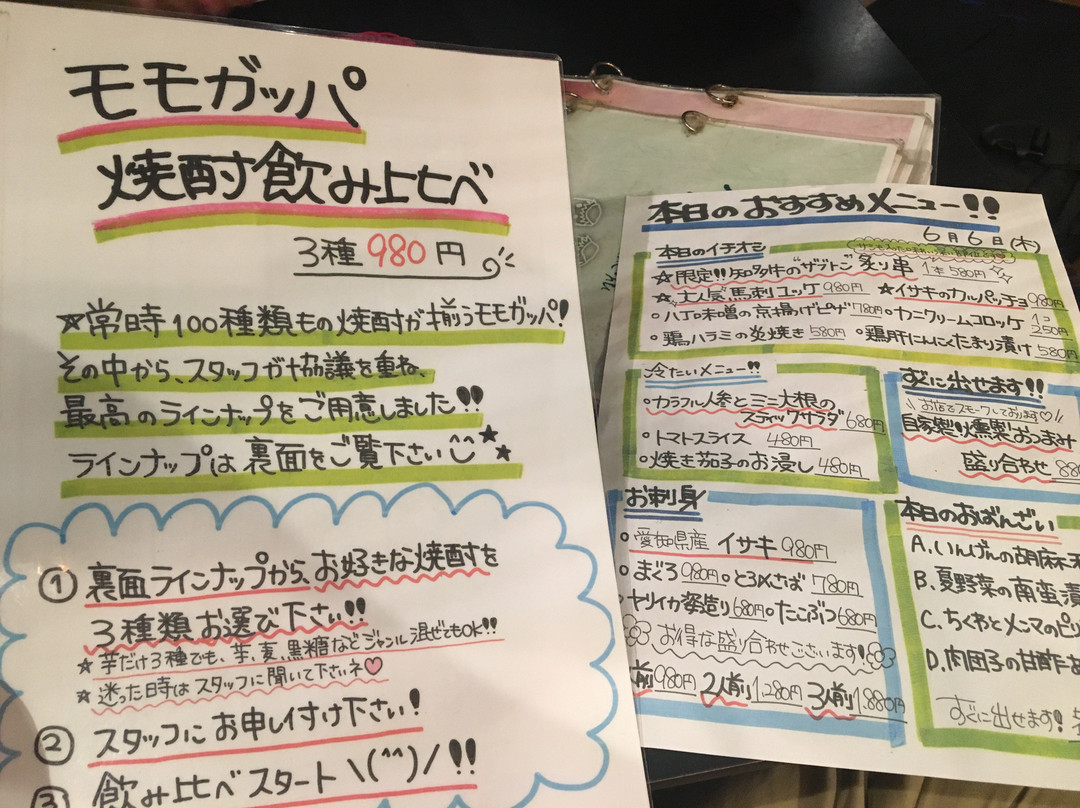 モモガッパ
焼酎飲み比べ
3種 980円
★常時100種類もの焼酎が揃うモモガッパ!
その中から、スタッフが協議を重ね、
最高のラインナップをご用意しました!!
ラインナップは裏面をご覧下さい^^★
① 裏面ラインナップから、お好きな焼酎を
3種類お選び下さい!!
★芋だけ3種でも、芋、麦、黒糖などジャンル混ぜてもOK!!
★迷った時はスタッフに聞いて下さいネ♡
② スタッフにお申し付け下さい!
③ 飲み比べスタート \(^^)/!!
本日のおすすめメニュー!!
6月6日(木)
本日のイチオシ
★限定!!知多牛の"ザブトン"炙り串 1本580円
★大人気馬刺ユッケ 980円 ★イサキのカルパッチョ 980円
○八丁味噌の京揚げピザ 780円 ○カニクリームコロッケ 1コ250円
○鶏ハラミの炎焼き 580円 ○鶏肝にんにくたまり漬け 580円
冷たいメニュー!!
○カラフル人参とミニ大根の
スティックサラダ 680円
○トマトスライス 480円
○焼き茄子のお浸し 480円
すぐに出せます!!
\お店でスモークしております♡/
自家製燻製おつまみ
盛り合わせ
お刺身
○愛知県産 イサキ 980円
○まぐろ 980円 ○とろ〆さば 780円
○ヤリイカ姿造り 680円 ○たこぶつ 680円
お得な盛り合わせございます!
980円 2人前 1.280円 3人前 1.880円
本日のおばんざい
A.いんげんの胡麻
B.夏野菜の南蛮漬
C.ちくわとメンマのピリ
D.肉団子の甘酢
すぐに出せます!